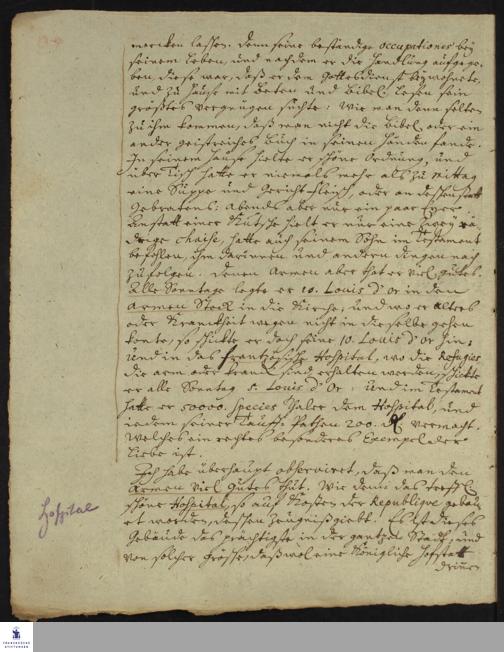 mercken lassen. Denn seine beständige occupationes bey
seinem Leben, und nachdem er die Handlung aufgege-
ben, diese war, daß er dem Gottesdienst beywohnete,
und zu Hause mit Beten und Bibel Lesen sein
größtes Vergnügen suchte: Wie man denn selten
zu ihm kommen, daß man nicht die Bibel oder ein
ander geistreiches Buch in seinen Händen fande.
In seinem Hause hielte er schöne Ordnung, und
über Tisch hatte er niemals mehr als zu Mittag
eine Suppe und Gericht Fleisch, oder an dessen statt
Gebratens: Abends aber nur ein paar Eyer.
Anstatt einer Kutsche hielt er nur eine Zwey rä-
drige chaise, hatte auch seinem Sohn im Testament
befohlen, ihm darinnen und andern dingen nach
zufolgen. Denen Armen aber that er viel gutes.
Alle Sonntage legte er 10. Louis d'Or in den
Armen Stock in die Kirche, und wo er alters
oder Kranckheit wegen nicht in dieselbe gehen
konte, so schickte er doch seine 10. Louis d'Or hin:
Und in das Frantzösische Hospital, wo die Refugiés
die arm oder kranck sind erhalten werden, schickte
er alle Sonntag 5. Louis d'Or: Und im Testament
hatte er 50000. Species Thaler dem Hospital, und
iedem seiner Tauff-Pathen 200. vermacht.
Welches ein rechtes besonderes Exempel der
Liebe ist.
Ich habe überhaupt observiret, daß man den
Armen viel Gutes thut. Wie denn das treffl.
schöne Hospital, so auf Kosten der Republique gebau-
et worden, dessen Zeugniß giebt. Es ist dieses
Gebäude das prächtigste in der gantzen Stadt, und
von solcher Grösse, daß wol eine Königliche Hofstatt
drinnen
Hospital
FRANCKESCHE
STIFTUNGEN